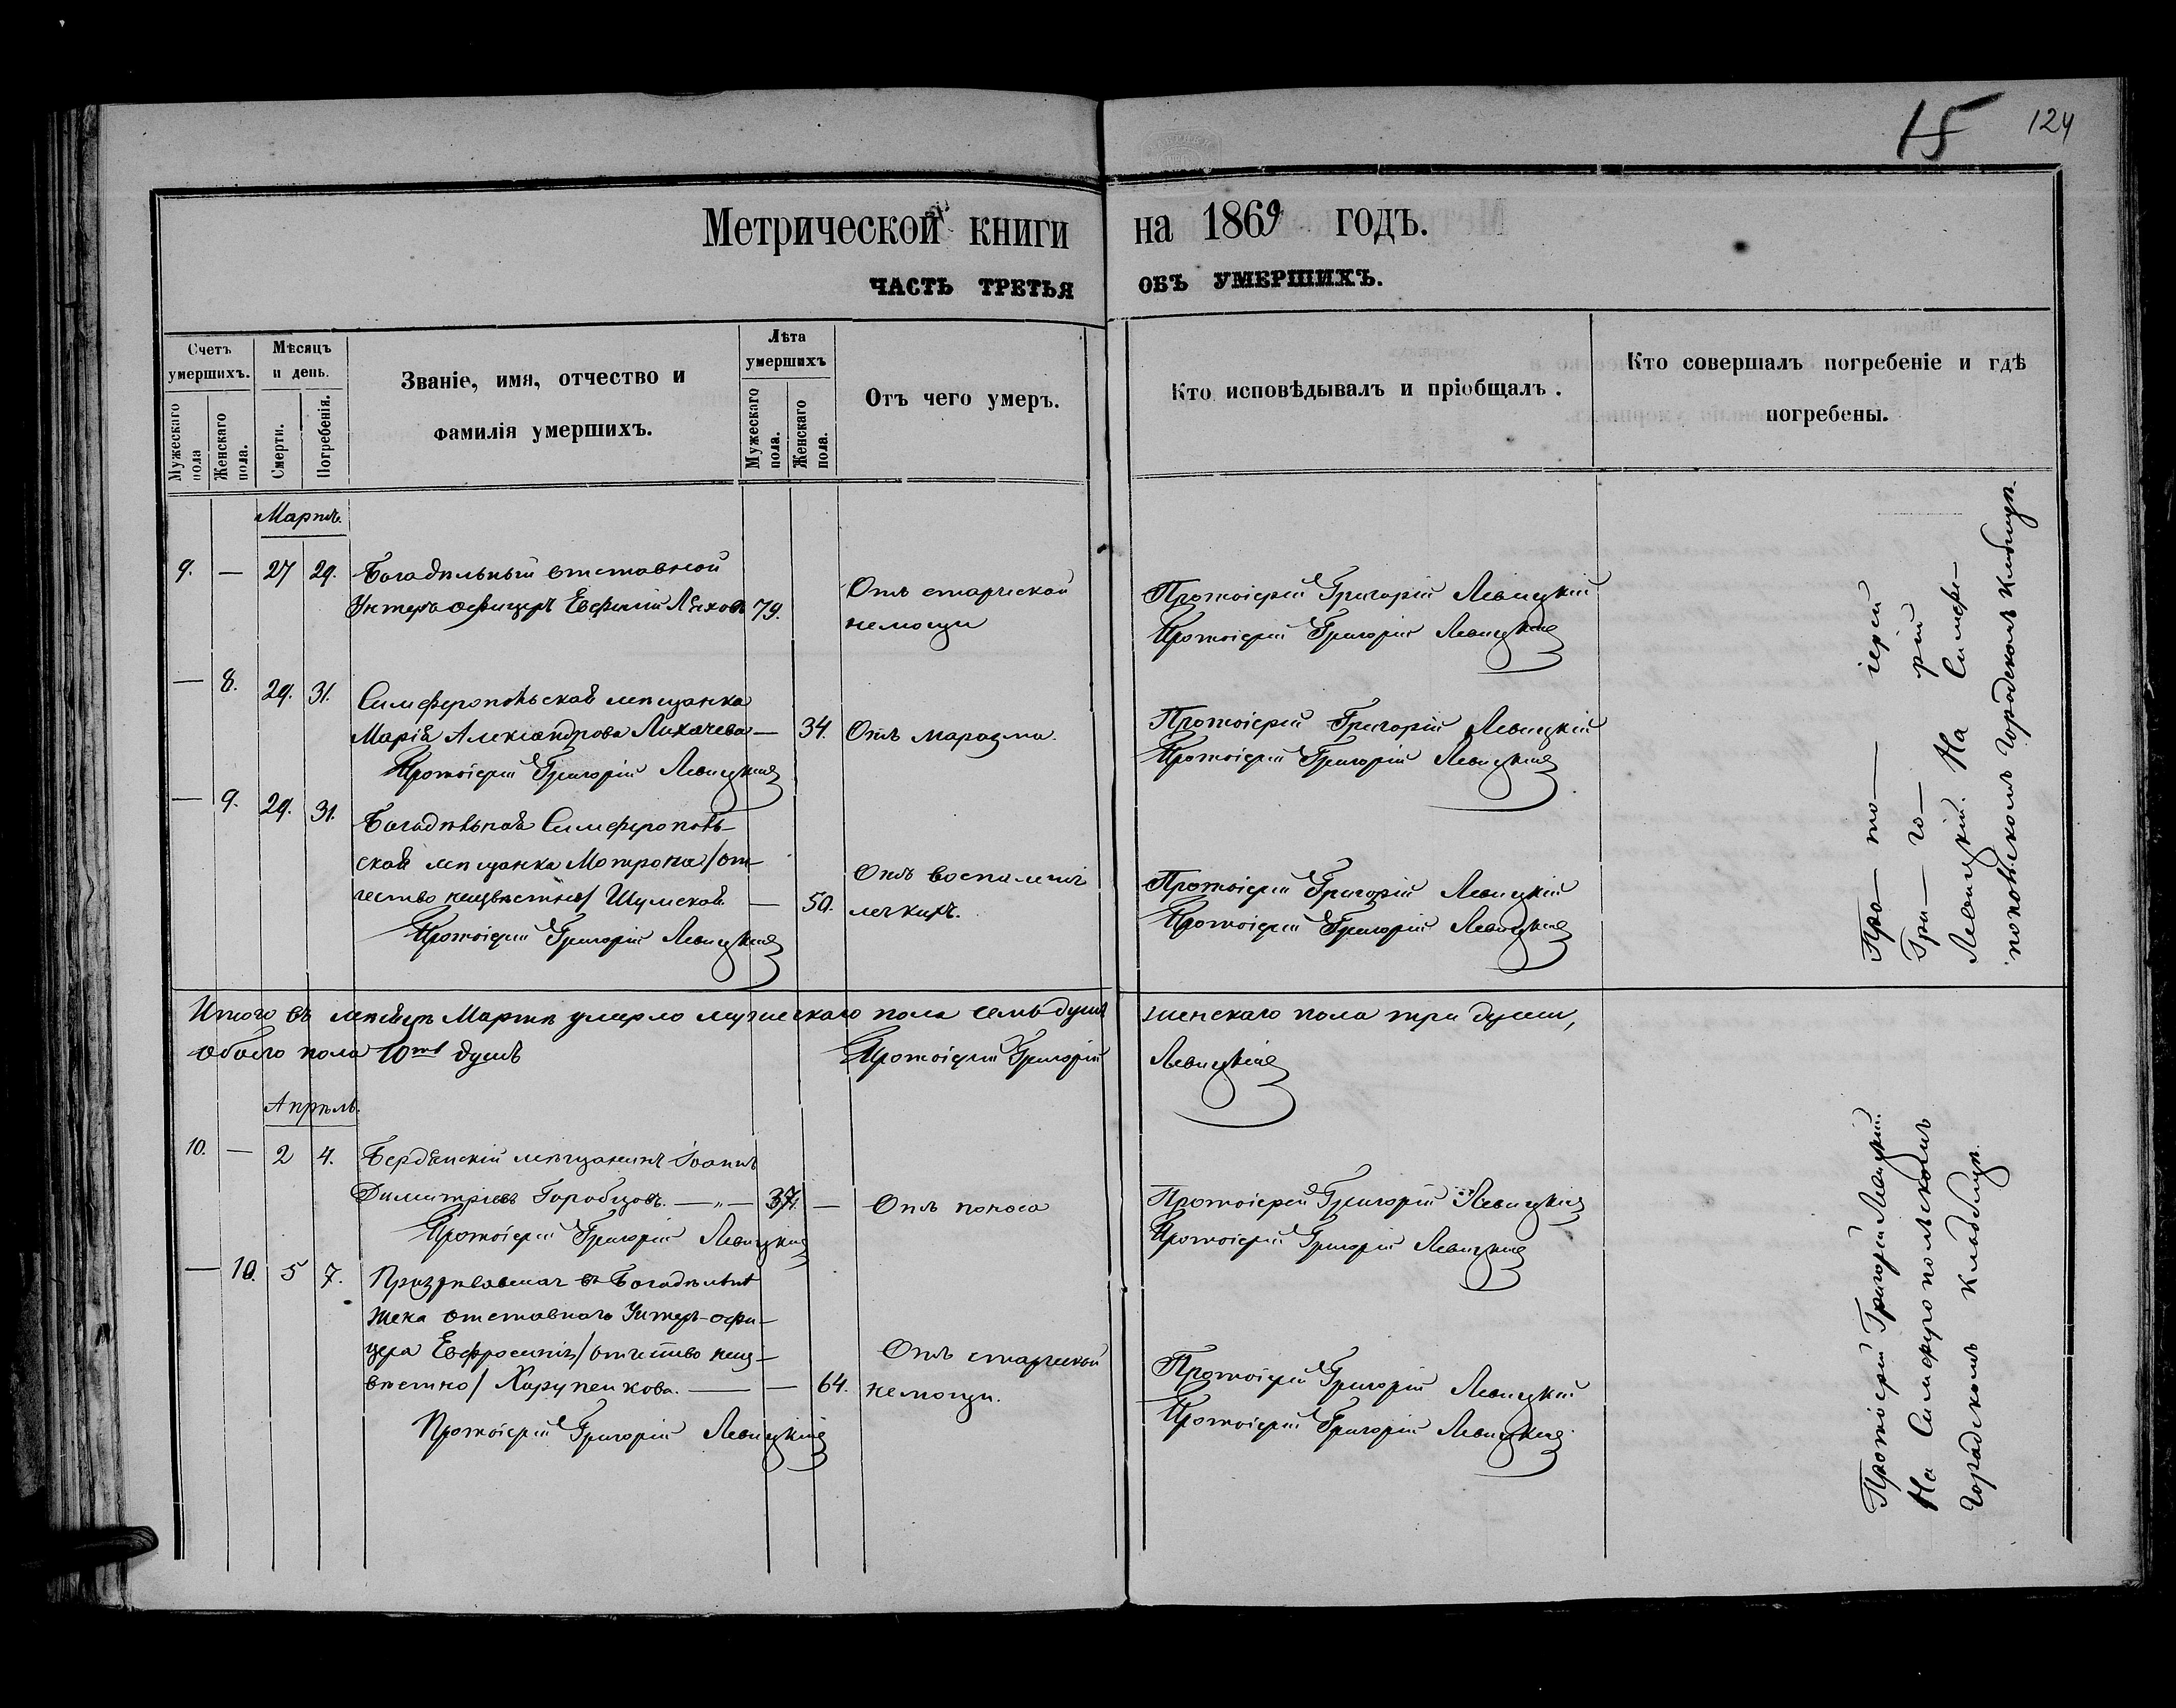 15 124
Метрической книги на 1869 годъ.
ЧАСТЬ ТРЕТЬЯ ОБЪ УМЕРШИХЪ.
Счетъ умершихъ.
Мужескаго пола
Женскаго пола.
Мѣсяцъ и день.
Смерти.
Погребенія.
Званіе, имя, отчество и
фамилія умершихъ.
Лѣта умершихъ
Мужескаго пола.
Женскаго пола.
Отъ чего умеръ.
Кто исповѣдывалъ и пріобщалъ.
Кто совершалъ погребеніе и гдѣ
погребены.
Мартъ.
9. — 27 29. Богадѣльный отставной
Унтеръ офицеръ Евфимій Ляховъ 79.
Отъ старческой
немощи
Протоіерей Григорій Левицкій
Протоіерей Григорій Левицкій
— 8. 29. 31. Симферопольская мѣщанка
Марія Александрова Лихачева — 34. Отъ маразма.
Протоіерей Григорій Левицкій
Протоіерей Григорій Левицкій
Протоіерей Григорій Левицкій
— 9. 29. 31. Богадѣльная Симферополь-
ская мѣщанка Матрона /от-
чество неизвѣстно/ Шумская — 50.
Протоіерей Григорій Левицкій
Отъ воспаленія
легкихъ.
Протоіерей Григорій Левицкій
Протоіерей Григорій Левицкій
Про— то— іерей
Гри— го— рій
Левицкій. На Симфе-
ропольскомъ городскомъ кладбищѣ.
Итого въ мѣсяцѣ Мартѣ умерло мужескаго пола семь душъ женскаго пола три души,
обоего пола 10ть душъ Протоіерей Григорій Левицкій
Апрѣль.
10. — 2 4. Бердянскій мѣщанинъ Іоаннъ
Димитріевъ Горобцовъ. — „ — 37. — Отъ поноса
Протоіерей Григорій Левицкій
Протоіерей Григорій Левицкій
Протоіерей Григорій Левицкій
— 10. 5 7. Призрѣваемая въ Богадѣльнѣ
жена отставнаго Унтеръ-офи-
цера Евфросинія /отчество неиз-
вѣстно/ Харупенкова. — — 64.
Протоіерей Григорій Левицкій
Отъ старческой
немощи.
Протоіерей Григорій Левицкій
Протоіерей Григорій Левицкій
Протоіерей Григорій Левицкій.
На Симферопольскомъ
городскомъ кладбищѣ.